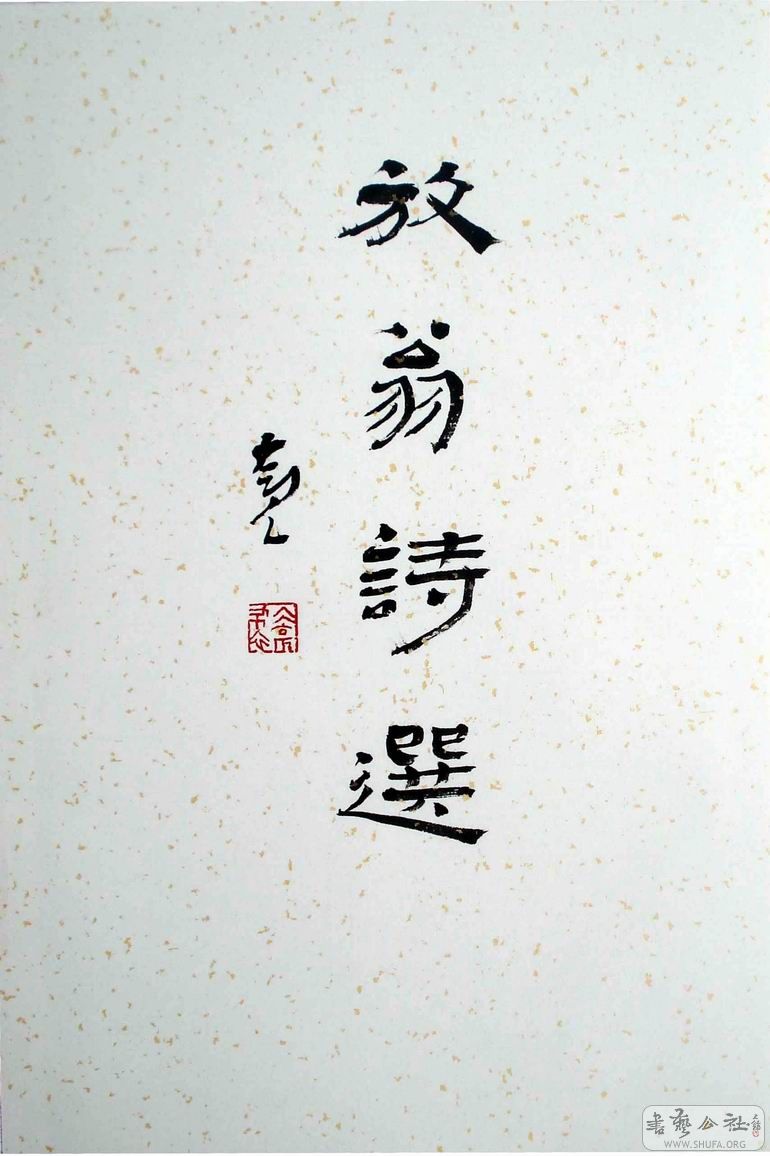 放翁詩選
書藝公社
WWW.SHUFA.ORG